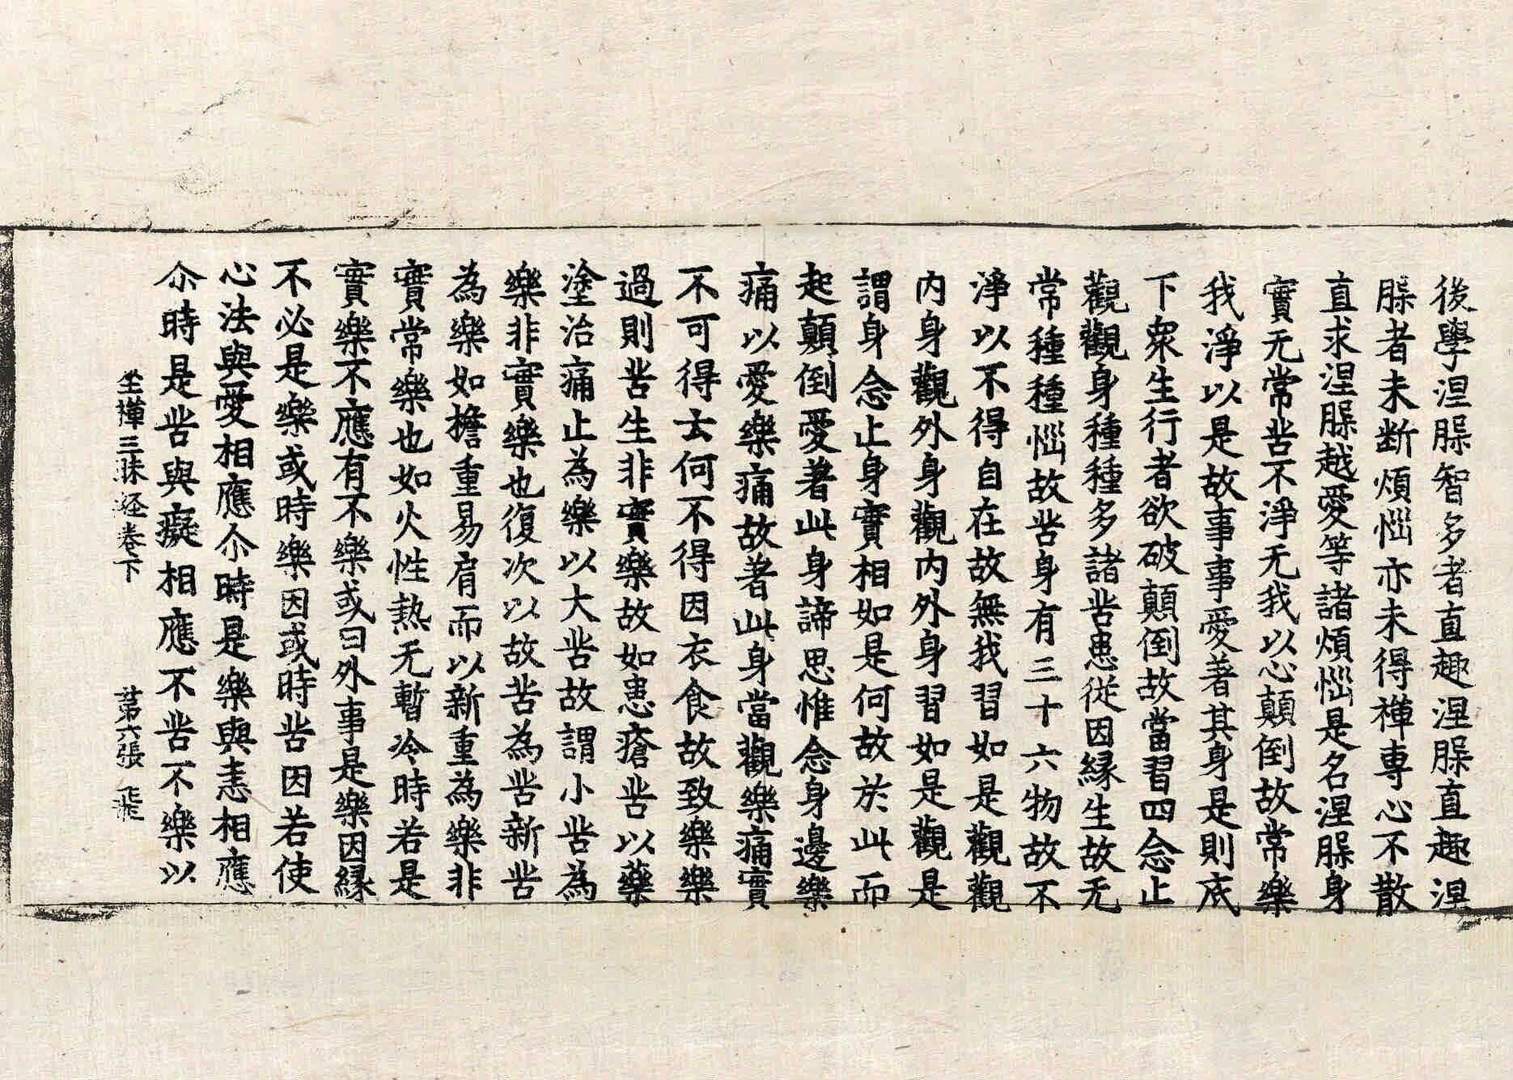 後學涅槃智多者直趣涅槃直趣涅
槃者未断煩惱亦未得禪専心不散
直求涅槃越愛等諸煩惱是名涅槃身
實无常苦不淨无我以心顛倒故常樂
我淨以是故事事愛著其身是則底
下衆生行者欲破顛倒故當習四念止
觀觀身種種多諸苦患從因縁生故无
常種種惱故苦身有三十六物故不
淨以不得自在故無我習如是觀觀
内身觀外身觀内外身習如是觀是
謂身念止身實相如是何故於此而
起顛倒愛著此身諦思惟念身邊樂
痛以愛樂痛故著此身當觀樂痛實
不可得云何不得因衣食故致樂樂
過則苦生非實樂故如患瘡苦以藥
塗治痛止為樂以大苦故謂小苦為
樂非實樂也復次以故苦為苦新苦
為樂如擔重易肩而以新重為樂非
實常樂也如火性熱无暫冷時若是
實樂不應有不樂或曰外事是樂因縁
不必是樂或時樂因或時苦因若使
心法與愛相應尒時是樂與恚相應
尒時是苦與癡相應不苦不樂以
坐禪三昧経卷下 第六張